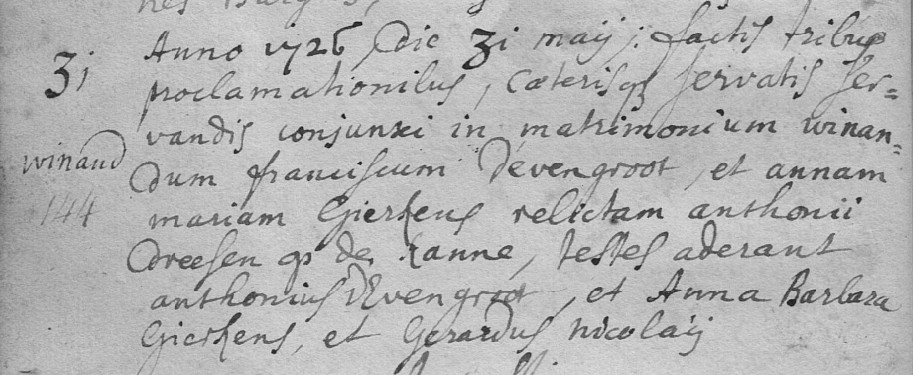 Anno 1726 die 31 maij: factis tribus
31
proclamationibus, Cæterisqz servatis ser=
vandis conjunxi in matrimonium winan=
winand
dum franciscum Devengroot, et annam
144
mariam Gierkens relictam anthonii
dreesen de Kanne, testes aderant
anthonius dEvengroot, et Anna Barbara
Gierkens, et Gerardus nicolaij